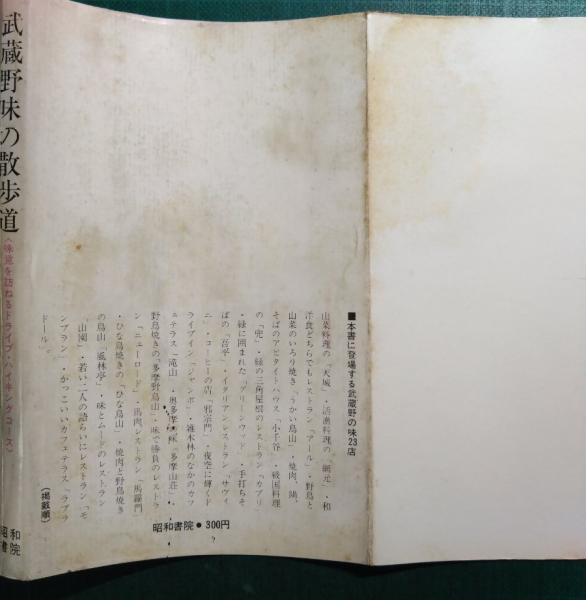 武蔵野味の散歩道
〈味覚を訪ねるドライブ・ハイキングコース〉
昭和
書院
■本書に登場する武蔵野の味23店
山菜料理の「天城」・活魚料理の「網元」・和
洋食どちらでもレストラン「アール」・野鳥と
山菜のいろり焼き「うかい鳥山」・焼肉、鍋、
そばのアヒタイトハウス「小千谷」・戦国料理
の「兜」・緑の三角屋根のレストラン「カプリ」
・緑に囲まれた「グリーンウッド」・手打ちそ
ばの「吾平」・イタリアンレストラン「サヴィ
ニ」・コーヒーの店「邪宗門」・夜空に輝くド
ライブイン「ジャンボ」・雑木林のなかのカフ
ェテラス「滝山」・奥多摩の味「多摩山荘」・
野鳥焼きの「多摩野鳥山」・味で勝負のレストラ
ン「ニューロード」・馬肉レストラン「馬羅門」
・ひな鳥焼きの「ひな鳥山」・焼肉と野鳥焼き
の鳥山「風林亭」・味とムードのレストラン
「山園」・若い二人の語らいにレストラン「モ
ンブラン」・かっこいいカフェテラス「ラブラ
ドール」。
(掲載順)
昭和書院●300円